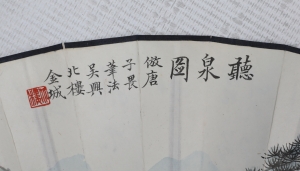 聽泉圖
倣唐
子畏
筆法
吳興
北樓
金城